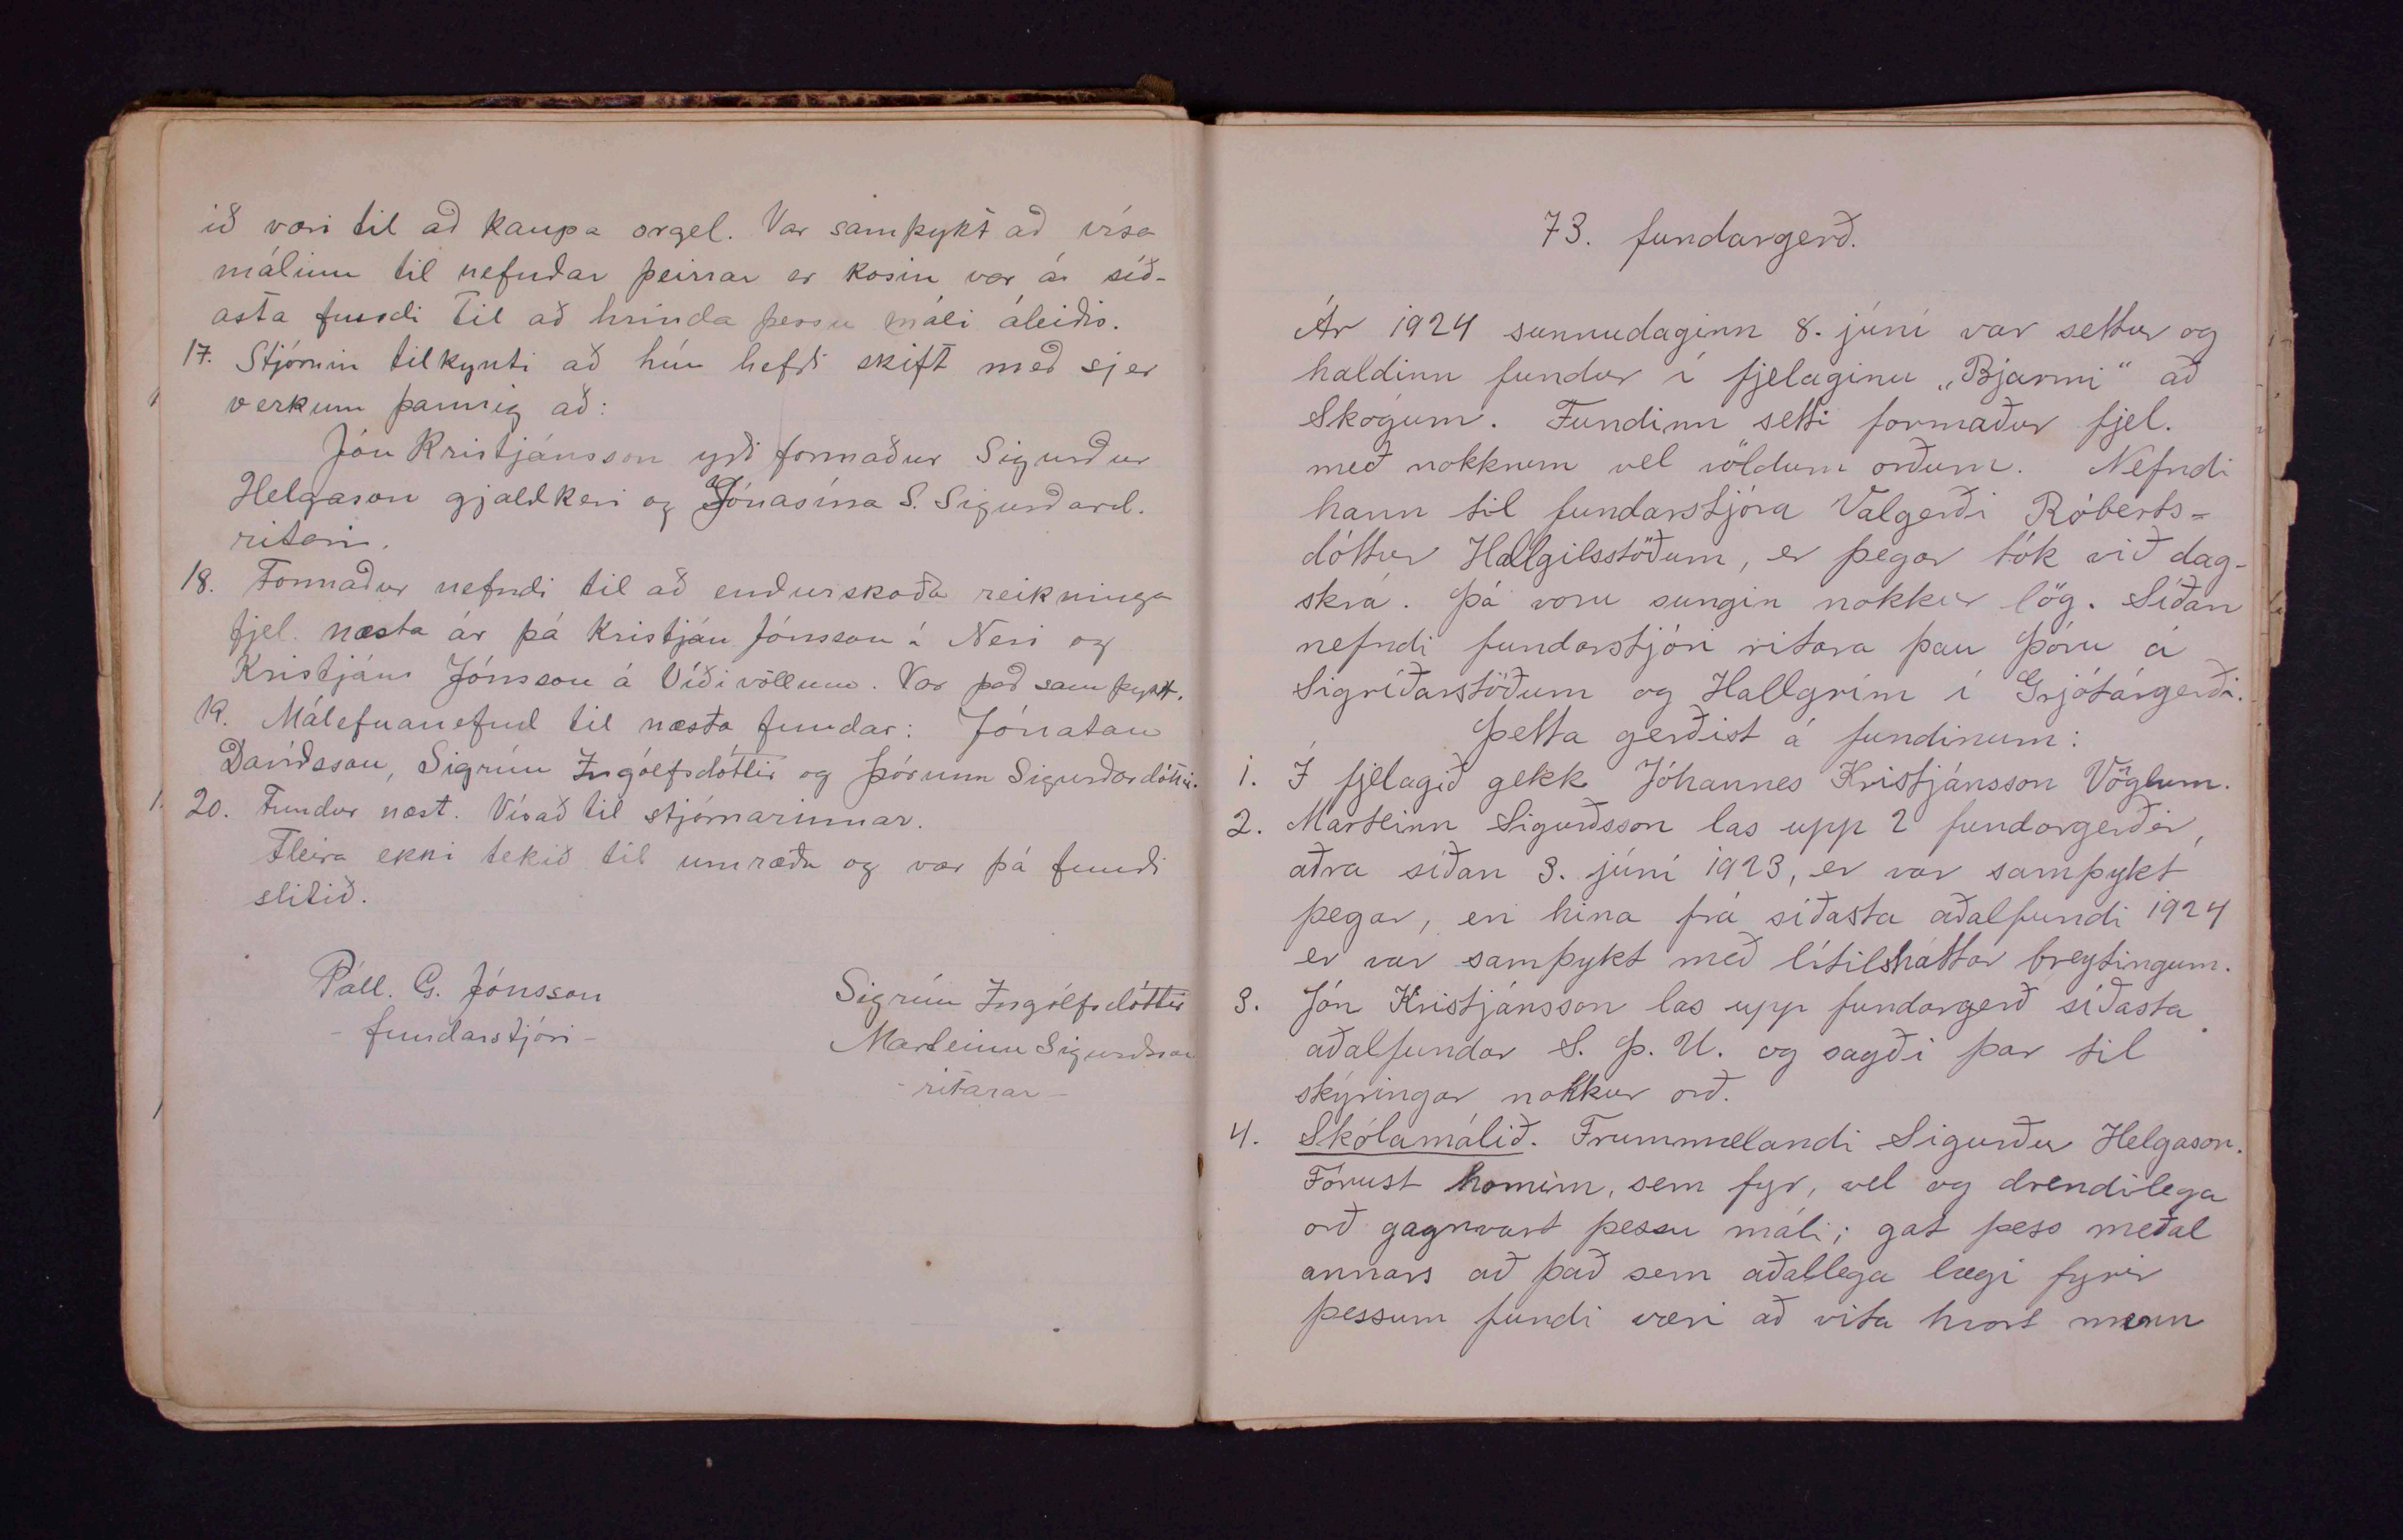 ið væri til að kaupa orgel. Var samþykt að vísa
málinu til nefndar þeirrar er kosin var á síð-
asta fundi til að hrinda þessu máli áleiðis.
17. Stjórnin tilkynti að hún hefði skift með sjer
verkum þannig að:
Jón Kristjánsson yrði formaður Sigurður
Helgason gjaldkeri og Jónasína S. Sigurðard.
ritari.
18. Formaður nefndi til að endurskoða reikninga
fjel. næsta ár þá Kristján Jónsson í Nesi og
Kristján Jónsson á Víðivöllum. Var það samþykt.
19. Málefnanefnd til næsta fundar: Jónatan
Davíðsson, Sigrún Ingólfsdóttir og Þórunn Sigurðardóttir.
20. Fundur næst. Vísað til stjórnarinnar.
Fleira ekki tekið til umræðu og var þá fundi
slitið.
Páll. G. Jónsson
- fundarstjóri -
Sigrún Ingólfsdóttir
Marteinn Sigurðsson
- ritarar -
73. fundargerð.
Ár 1924 sunnudaginn 8. júní var settur og
haldinn fundur í fjelaginu „Bjarmi“ að
Skógum. Fundinn setti formaður fjel.
með nokkrum vel völdum orðum. Nefndi
hann til fundarstjóra Valgerði Róberts=
dóttur Hallgilsstöðum, er þegar tók við dag-
skrá. Þá voru sungin nokkur lög. Síðan
nefndi fundarstjóri ritara þau Þóru á
Sigríðarstöðum og Hallgrím í Grjótárgerði.
Þetta gerðist á fundinum:
1. Í fjelagið gekk Jóhannes Kristjánsson Vöglum.
2. Marteinn Sigurðsson las upp 2 fundargerðir,
aðra síðan 3. júní 1923, er var samþykt
þegar, en hina frá síðasta aðalfundi 1924
er var samþykt með lítilsháttar breytingum.
3. Jón Kristjánsson las upp fundargerð síðasta
aðalfundar S. Þ. U. og sagði þar til
skýringar nokkur orð.
4. Skólamálið. Frummælandi Sigurður Helgason.
Fórust honum, sem fyr, vel og drendilega
orð gagnvart þessu máli; gat þess meðal
annars að það sem aðallega lægi fyrir
þessum fundi væri að vita hvort menn